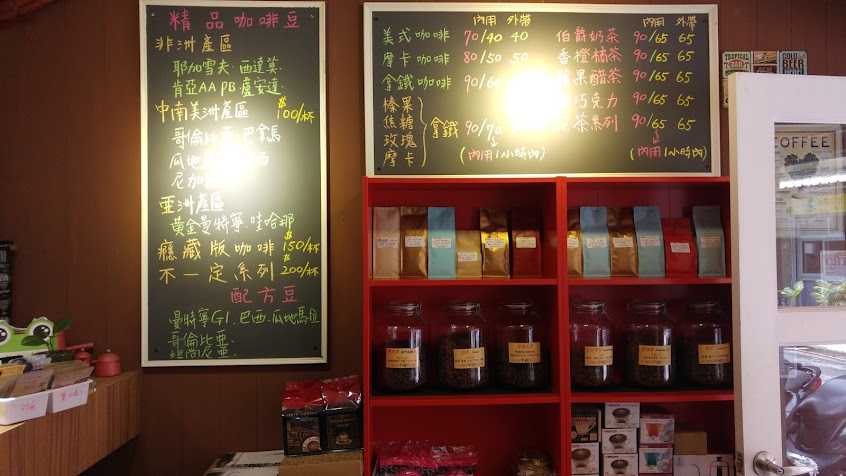 精品咖啡豆
非洲產區
耶加雪夫.西達莫.
肯亞AA PB.盧安達.
中南美洲產區 $100/杯
哥倫比亞.巴拿馬
瓜地 西
尼加
亞洲產區
黃金曼特寧.哇哈那
癮藏版咖啡 $150/杯
不一定系列 $200/杯
配方豆
曼特寧G1.巴西.瓜地馬拉
哥倫比亞
坦尚尼亞.
內用 外帶
美式咖啡 70/40 40
摩卡咖啡 80/50 50
拿鐵咖啡 90/60
榛果
焦糖
玫瑰
摩卡
拿鐵 90/70
(內用1小時內)
內用 外帶
伯爵奶茶 90/65 65
香橙橘茶 90/65 65
蘋果醋茶 90/65 65
巧克力 90/65 65
茶系列 90/65 65
(內用1小時內)
TROPICAL
BAR
COLD
BEER
COFFEE